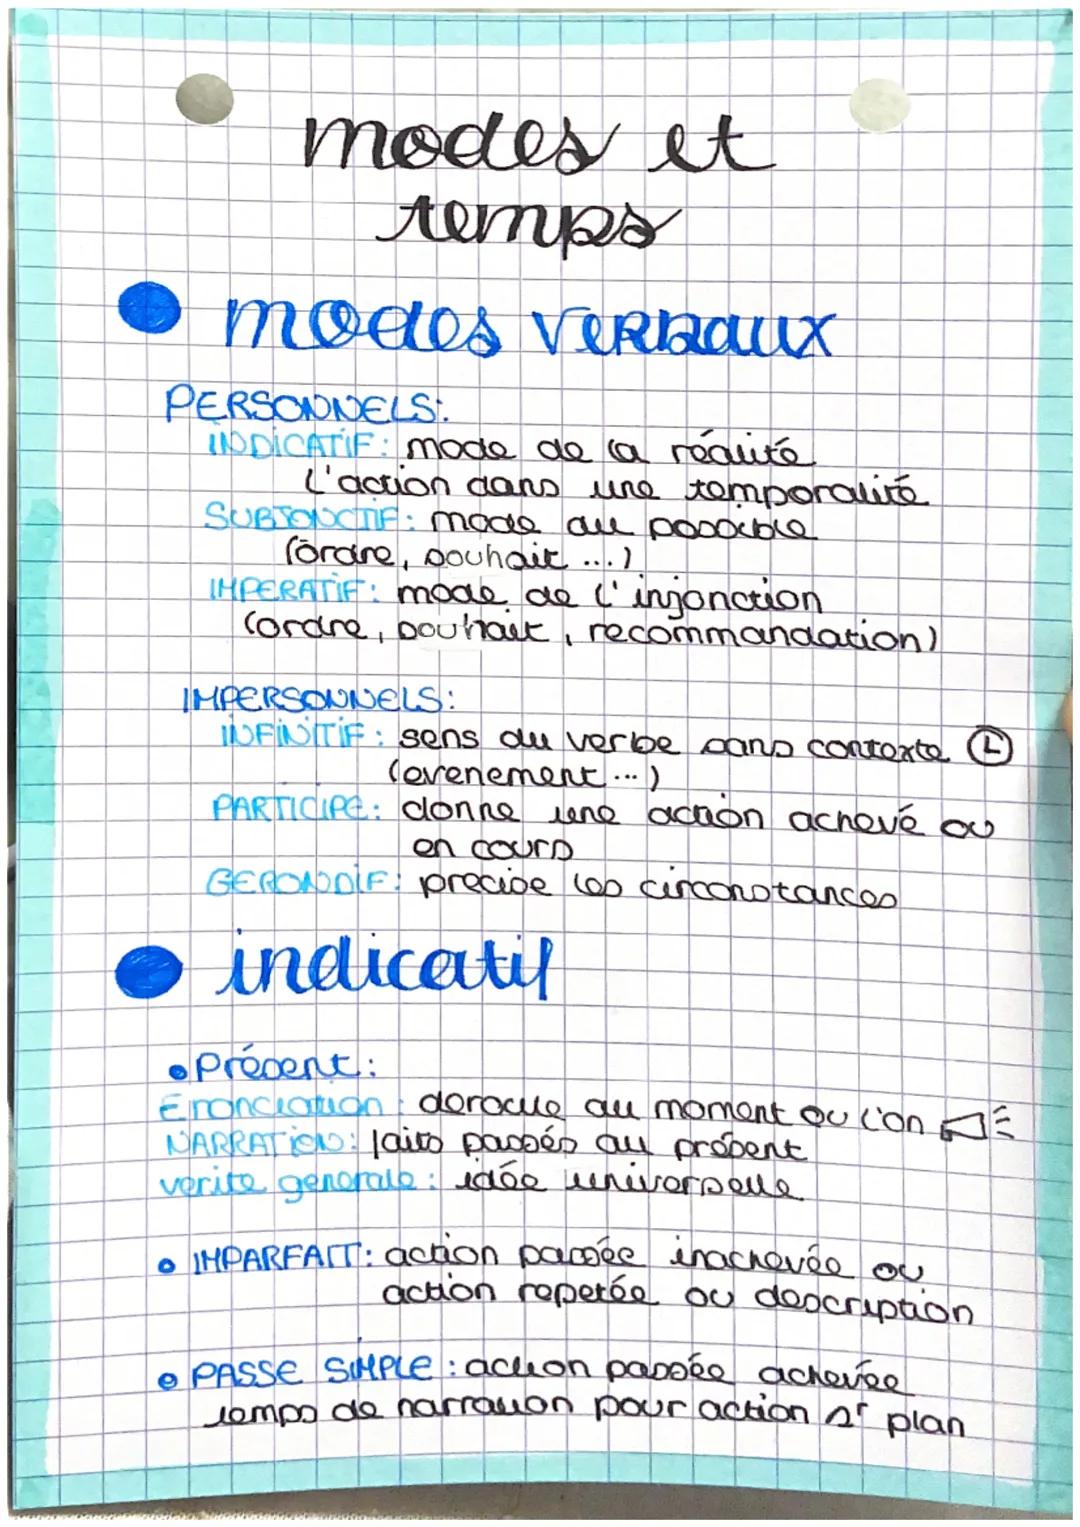 modes et
temps
modes verbaux
PERSONNELS:
INDICATIF: mode de la réalité
l'action dans une temporalité
SUBJONCTIF: mode du possible
(ordre, souhait ...)
IMPERATIF: mode de l'injonction
(ordre, souhait, recommandation)
IMPERSONNELS:
INFINITIF: sens du verbe sans contexte
(evenement ...)
PARTICIPE: donne une action achevé ou
en cours
GERONDIF: precise les circonstances
indicatif
• Présent:
Enonciation: deroule au moment ou l'on
NARRATION: faits passés au présent
verite generale: idée universelle
• IMPARFAIT: action passée inachevée ou
action repetée ou description
• PASSE SIMPLE: action passée achevée
temps de narration pour action 1r plan